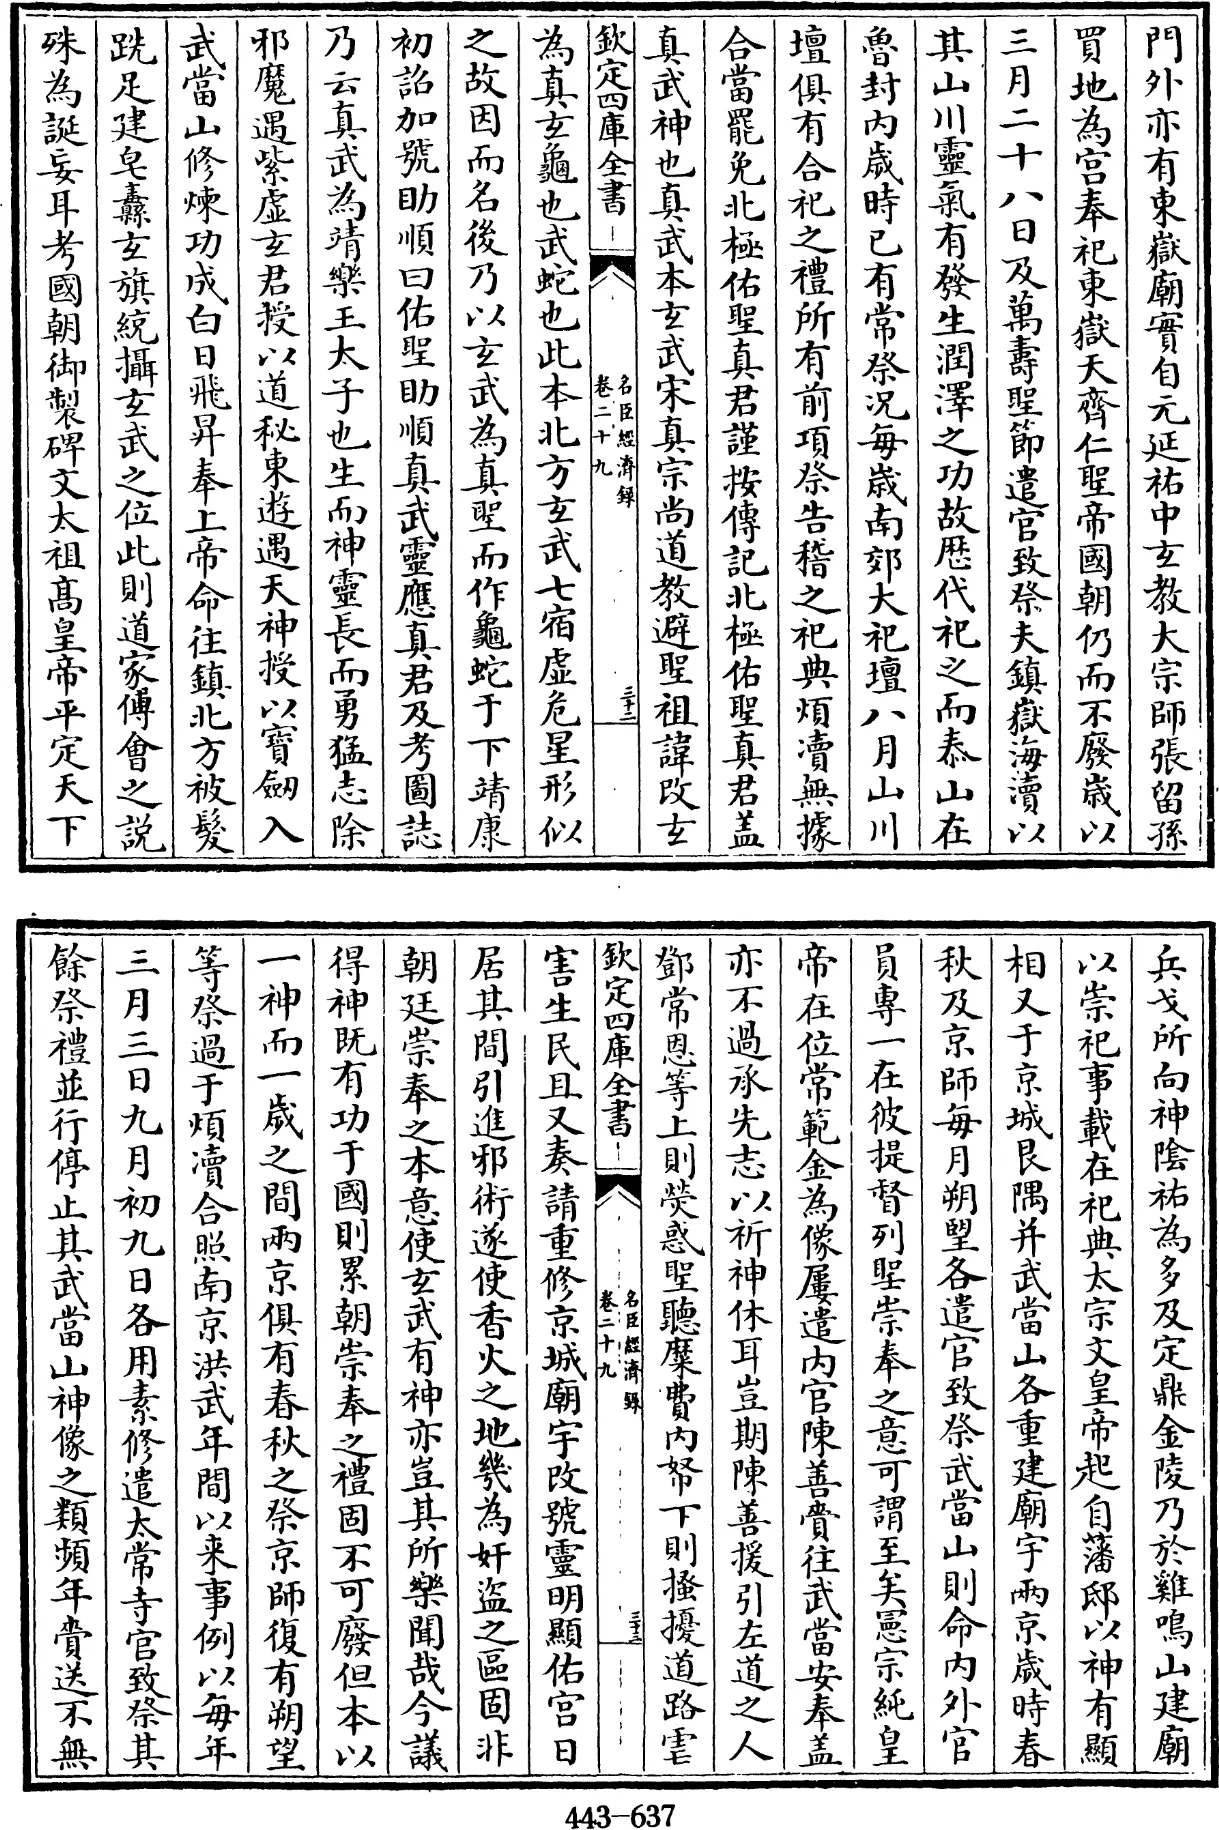 門外亦有東嶽廟實自元延祐中玄教大宗師張留孫
買地為宫奉祀東嶽天齊仁聖帝國朝仍而不廢歳以
三月二十八日及萬壽聖節遣官致祭夫鎮嶽海瀆以
其山川靈氣有發生潤澤之功故歴代祀之而㤗山在
魯封内歳時已有常祭况毎歳南郊大祀壇八月山川
壇俱有合祀之禮所有前項祭告稽之祀典煩瀆無據
合當罷免北極佑聖真君謹按傳記北極佑聖真君盖
真武神也真武本玄武宋真宗尚道教避聖祖諱改玄
欽定四庫全書
名臣經濟錄
卷二十九
三十二
為真玄龜也武蛇也此本北方玄武七宿虚危星形似
之故因而名後乃以玄武為真聖而作龜蛇于下靖康
初詔加號助順曰佑聖助順真武靈應真君及考圖誌
乃云真武為靖樂王太子也生而神靈長而勇猛志除
邪魔遇紫虚玄君授以道秘東遊遇天神授以寳劔入
武當山修煉功成白日飛昇奉上帝命往鎮北方被髮
跣足建皂纛玄旗統攝玄武之位此則道家傅會之説
殊為誕妄耳考國朝御製碑文太祖髙皇帝平定天下
兵戈所向神隂祐為多及定鼎金陵乃於雞鳴山建廟
以崇祀事載在祀典太宗文皇帝起自藩邸以神有顯
相又于京城艮隅并武當山各重建廟宇兩京歳時春
秋及京師每月朔望各遣官致祭武當山則命内外官
員專一在彼提督列聖崇奉之意可謂至矣憲宗純皇
帝在位常範金為像屢遣内官陳善賫往武當安奉盖
亦不過承先志以祈神休耳豈期陳善援引左道之人
鄧常恩等上則熒惑聖聽糜費内帑下則搔擾道路害
欽定四庫全書
名臣經濟錄
卷二十九
三十三
害生民且又奏請重修京城廟宇改號靈明顯佑宫日
居其間引進邪術遂使香火之地幾為奸盜之區固非
朝廷崇奉之本意使玄武有神亦豈其所樂聞哉今議
得神既有功于國則累朝崇奉之禮固不可廢但本以
一神而一歳之間兩京俱有春秋之祭京師復有朔望
等祭過于煩瀆合照南京洪武年間以来事例以每年
三月三日九月初九日各用素修遣太常寺官致祭其
餘祭禮並行停止其武當山神像之類頻年賫送不無
443-637